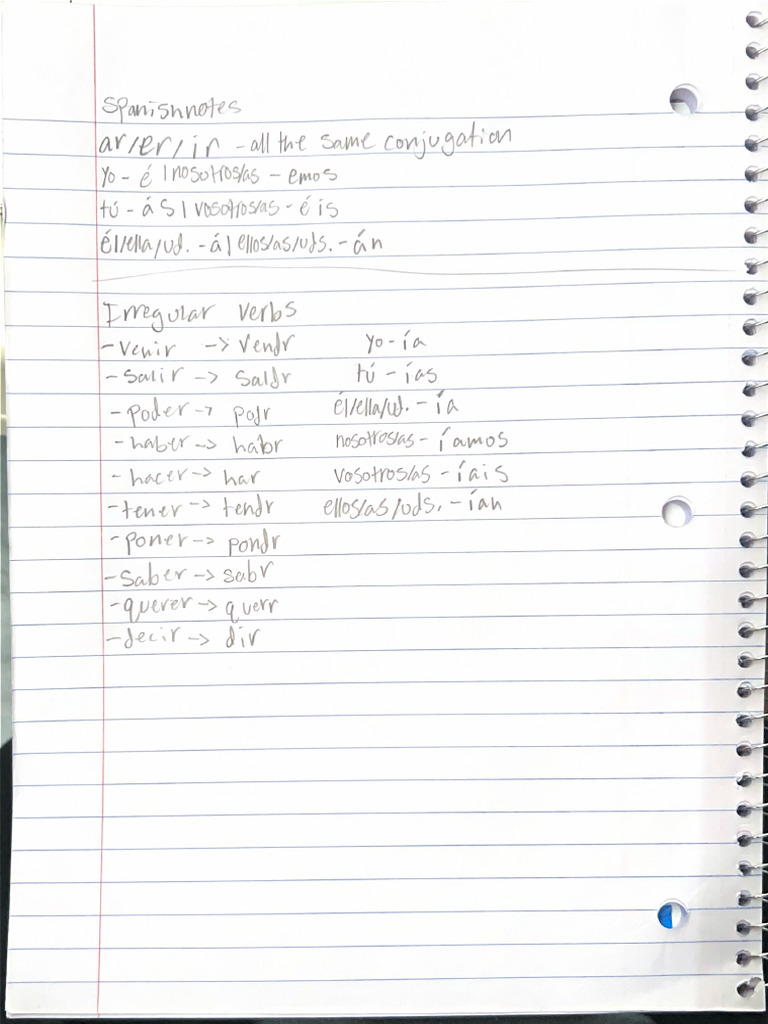 Spanish notes
ar/er/ir - all the same conjugation
yo - é | nosotros/as - emos
tú - ás | vosotros/as - éis
él/ella/ud. - á | ellos/as/uds. - án
Irregular verbs
- venir -> vendr yo - ía
- salir -> saldr tú - ías
- poder -> podr él/ella/ud. - ía
- haber -> habr nosotros/as - íamos
- hacer -> har vosotros/as - íais
- tener -> tendr ellos/as/uds. - ían
- poner -> pondr
- saber -> sabr
- querer -> querr
- decir -> dir